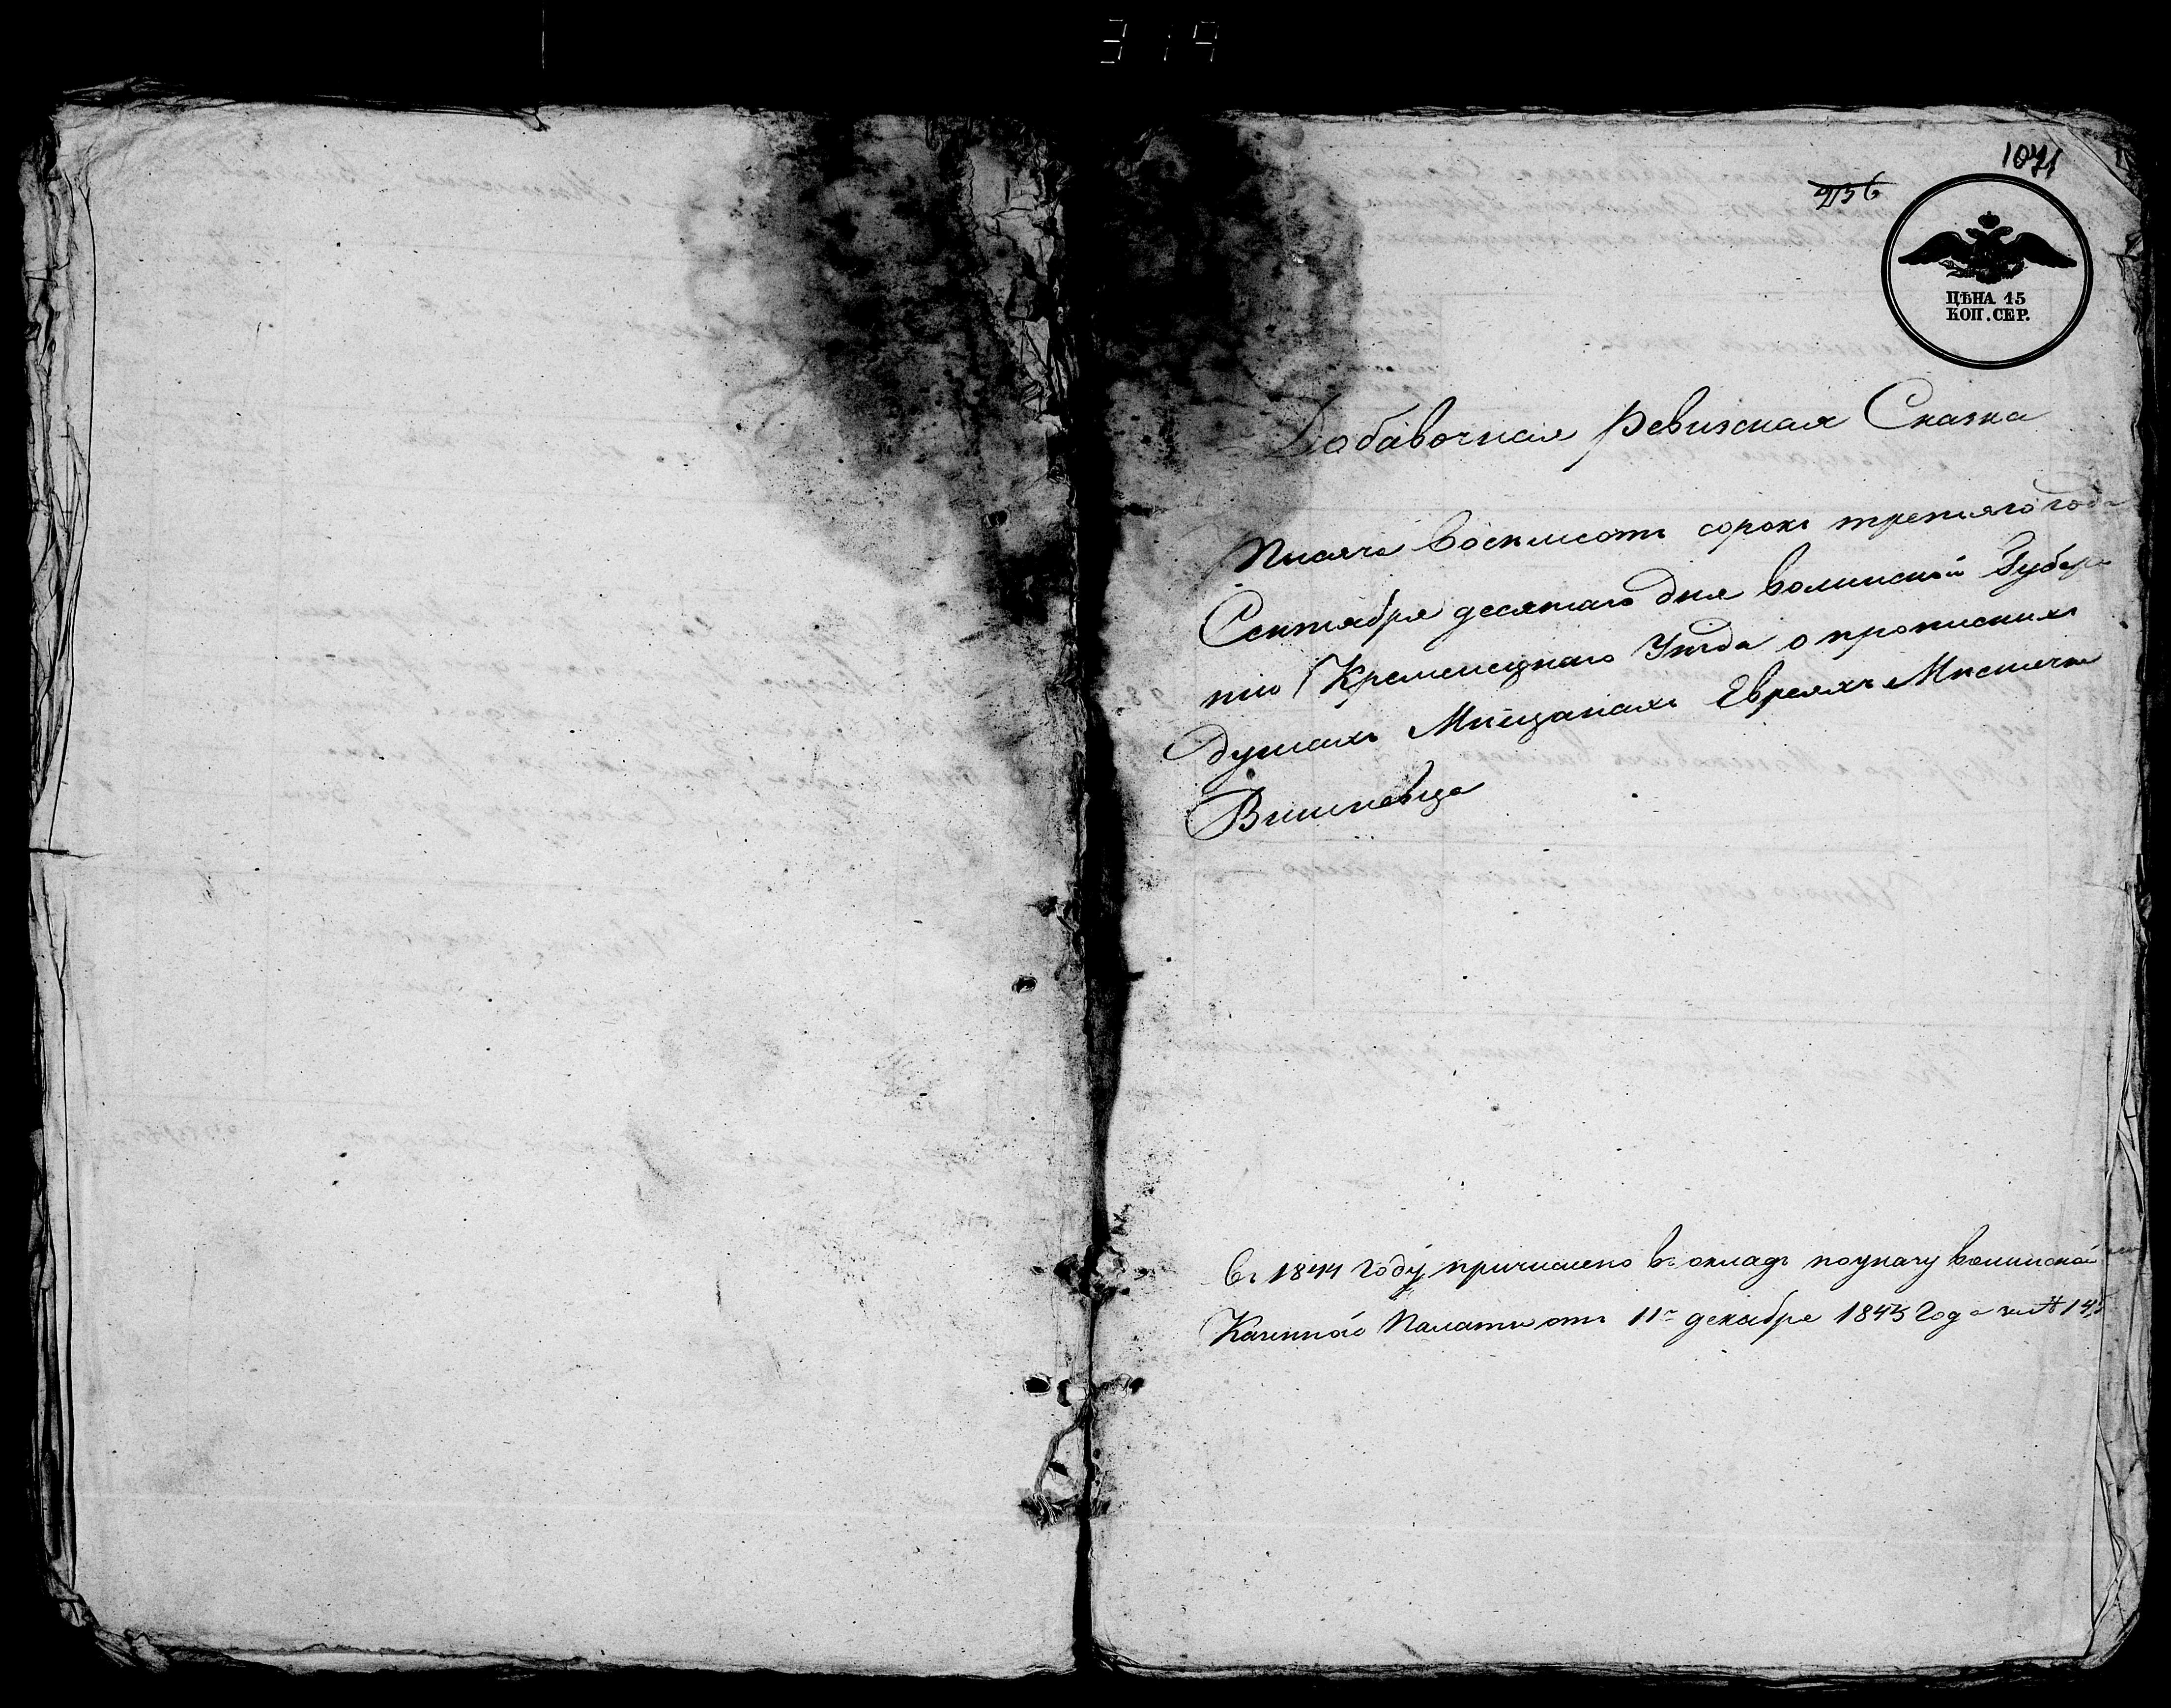 314
1071
936
ЦѢНА 15
КОП. СЕР.
Добавочная Ревизская Сказка
Тысяча восемсотъ сорокъ третьяго года
Сентября десятаго дня Волынской Губер
ніи Кременецкаго Уѣзда о прописныхъ
душахъ Мѣщанахъ Евреяхъ Мѣстечка
Вишневца
Въ 1844 году причислено въ окладъ по указу Волынской
Казенной Палаты отъ 11го декабря 1843 года за №